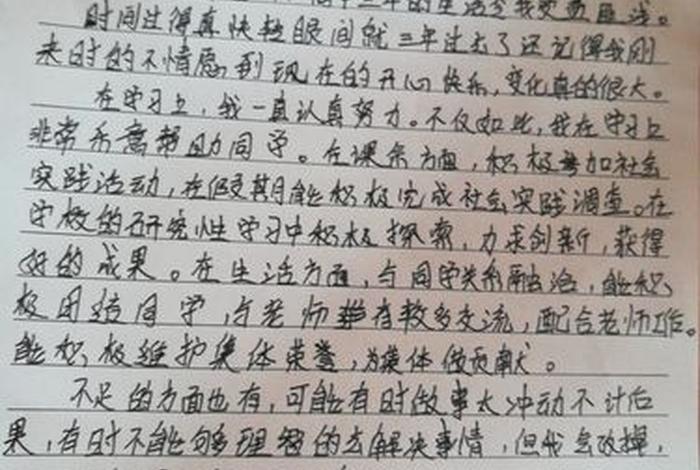 三年的生活令我受益匪浅。
时间过得真快转眼间就三年过去了还记得我刚
来时的不情愿到现在的开心快乐,变化真的很大。
在学习上,我一直认真努力。不仅如此,我在学习上
非常乐意帮助同学。在课余方面,积极参加社会
实践活动,在假期能积极完成社会实践调查。在
学校的研究性学习中积极探索,力求创新,获得
好的成果。在生活方面,与同学关系融洽,能积
极团结同学,与老师有较多交流,配合老师工作。
能积极维护集体荣誉,为集体做贡献。
不足的方面也有,可能有时做事太冲动不计后
果,有时不能够理智的去解决事情,但我会改掉,